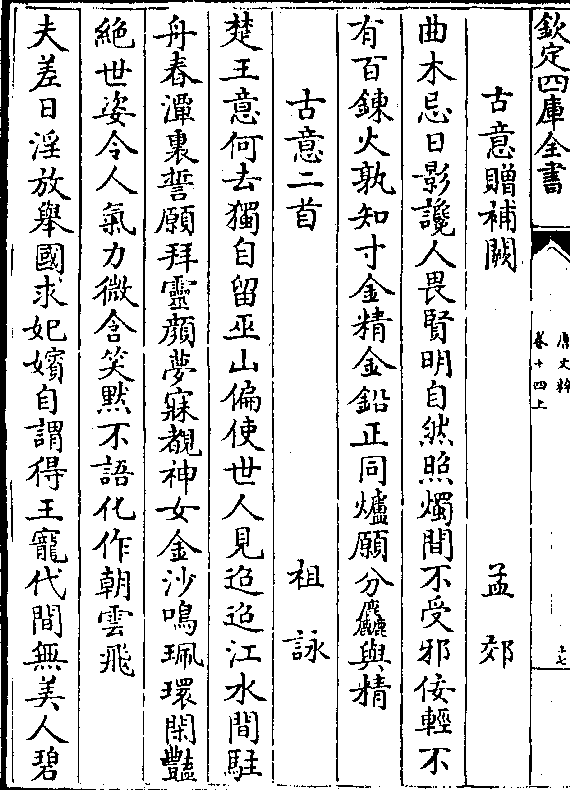 欽定四庫全書
唐文粹
卷十四上
十七
古意贈補闕 孟郊
曲木忌日影讒人畏賢明自然照燭間不受邪佞輕不
有百鍊火孰知寸金精金鉛正同爐願分麤與精
古意二首 祖詠
楚王意何去獨自留巫山偏使世人見迢迢江水間駐
舟春潭裏誓願拜靈顏夢寐覩神女金沙鳴珮環閑豔
絕世姿令人氣力微含笑默不語化作朝雲飛
夫差日淫放舉國求妃嬪自謂得王寵代間無美人碧